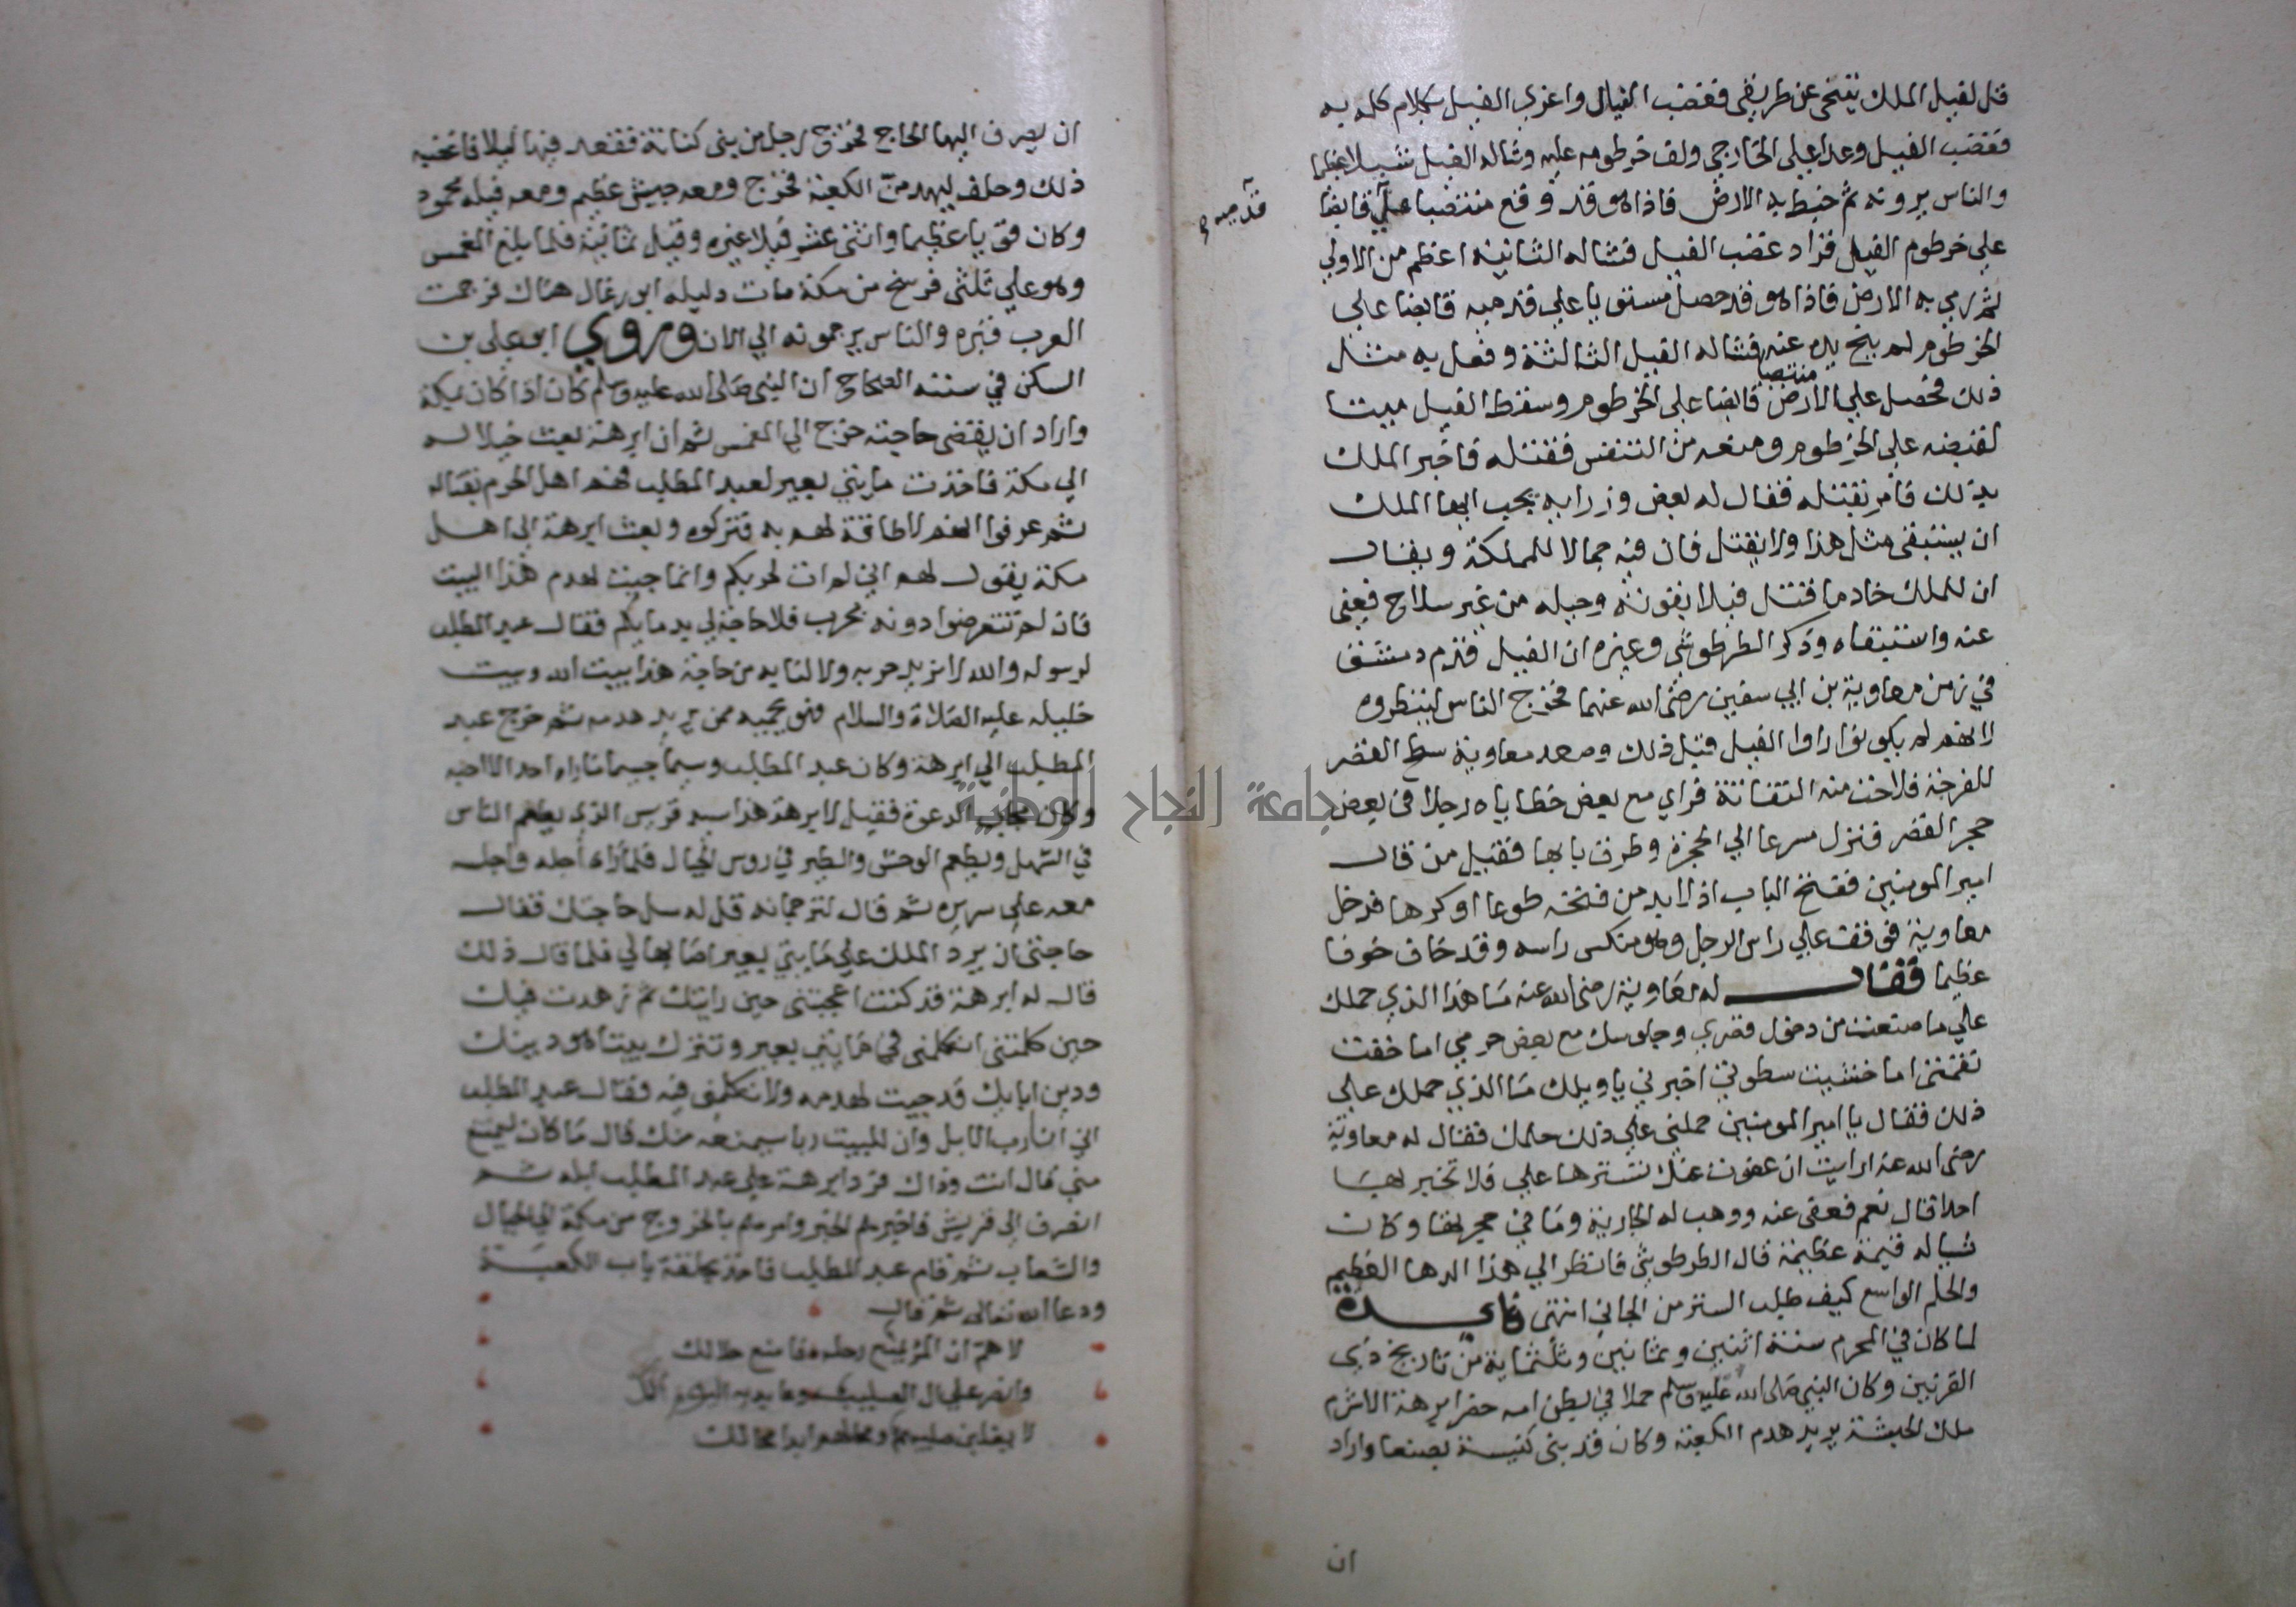 قل لفيل الملك يتنحى عن طريقي فغضب الفيال واغرى الفيل بكلام كلمه به
فغضب الفيل وعدا على الخارجي ولف خرطومه عليه وشاله الفيل شيلا عظيما
والناس يرونه ثم خبط به الارض فاذا هو قد وقع منتصبا علي قابضا
قدميه و
على خرطوم الفيل فزاد غضب الفيل فشاله الثانية اعظم من الاولي
ثم رمي به الارض فاذا هو قد حصل مستويا علي قدميه قابضا علي
الخرطوم لم ينح يده عنه فشاله الفيل الثالثة وفعل به مثل
ذلك فحصل علي الارض منتصبا قابضا على الخرطوم وسقط الفيل ميتا
لقبضه على الخرطوم ومنعه من التنفس فقتله فاخبر الملك
بذلك فامر بقتله فقال له بعض وزرايه يجب ايها الملك
ان يستبقى مثل هذا ولا يقتل فان فيه جمالا للمملكة ويقال
ان للملك خادما قتل فيلا بقوته وحيله من غير سلاح فعفى
عنه واستبقاه وذكر الطرطوشي وغيره ان الفيل قدم دمشق
في زمن معاوية بن ابي سفين رضي الله عنهما فخرج الناس لينظروه
لانهم لم يكونوا راوا الفيل قبل ذلك وصعد معاوية سطح القصر
للفرجة فلاحت منه التفاتة فراي مع بعض حظاياه رجلا في بعض
حجر القصر فنزل مسرعا الي الحجرة وطرق بابها فقيل من قال
امير المومنين ففتح الباب اذ لابد من فتحه طوعا او كرها فدخل
معاوية فوقف علي راس الرجل وهو منكس راسه وقد خاف خوفا
عظيما فقال له معاوية رضي الله عنه ما هذا الذي حملك
علي ما صنعت من دخول قصري وجلوسك مع بعض حرمي اما خفت
نقمتي اما خشيت سطوتي اخبرني يا ويلك ما الذي حملك علي
ذلك فقال يا امير المومنين حملني علي ذلك حلمك فقال له معاوية
رضي الله عنه ارايت ان عفوت عنك تسترها علي فلا تخبر بها
احدا قال نعم فعفى عنه ووهب له الجارية وما في حجرتها وكان
شيا له قيمة عظيمة قال الطرطوشي فانظر الي هذا الدها العظيم
والحلم الواسع كيف طلب الستر من الجاني انتهى فايدة
لما كان في المحرم سنة اثنين وثمانين وثلثماية من تاريخ ذي
القرنين وكان النبي صلى الله عليه وسلم حملا في بطن امه حضر ابرهة الاشرم
ملك الحبشة يريد هدم الكعبة وكان قد بنى كنيسة بصنعا واراد
ان
ان يصرف اليها الحاج فخرج رجل من بني كنانة فقعد فيها ليلا فاغضبه
ذلك وحلف ليهدمن الكعبة فخرج ومعه جيش عظيم ومعه فيله محمود
وكان قويا عظيما واثنى عشر فيلا غيره وقيل ثمانية فلما بلغ المغمس
وهو علي ثلثي فرسخ من مكة مات دليله ابو رغال هناك فرجمت
العرب قبره والناس يرجمونه الي الان وروي ابو علي بن
السكن في سننه الصحاح ان النبي صلى الله عليه وسلم كان اذا كان بمكة
واراد ان يقضى حاجته خرج الي المغمس ثم ان ابرهة بعث خيلا له
الي مكة فاخذت مايتي بعير لعبد المطلب فهم اهل الحرم بقتاله
ثم عرفوا انهم لا طاقة لهم به فتركوه وبعث ابرهة الى اهل
مكة يقول لهم اني لم ات لحربكم وانما جيت لهدم هذا البيت
فان لم تتعرضوا دونه بحرب فلا حاجة لي بدمايكم فقال عبد المطلب
لرسوله والله لا نريد حربه ولا لنا به من حاجة هذا بيت الله وبيت
خليله عليه الصلاة والسلام فهو يحميه ممن يريد هدمه ثم خرج عبد
المطلب الي ابرهة وكان عبد المطلب وسيما جسيما ما راه احد الا احبه
وكان مجاب الدعوة فقيل لابرهة هذا سيد قريش الذي يطعم الناس
في السهل ويطعم الوحش والطير في روس الجبال فلما راه اجله واجلسه
معه علي سريره ثم قال لترجمانه قل له سل حاجتك فقال
حاجتي ان يرد الملك علي مايتي بعير اصابها لي فلما قال ذلك
قال له ابرهة قد كنت اعجبتني حين رايتك ثم زهدت فيك
حين كلمتني اتكلمني في مايتي بعير وتترك بيتا هو دينك
ودين ابايك قد جيت لهدمه ولا تكلمني فيه فقال عبد المطلب
اني انا رب الابل وان للبيت ربا سيمنعه منك قال ما كان ليمنع
مني قال انت وذاك فرد ابرهة علي عبد المطلب ابله ثم
انصرف الى قريش فاخبرهم الخبر وامرهم بالخروج من مكة الي الجبال
والشعاب ثم قام عبد المطلب فاخذ بحلقة باب الكعبة
ودعا الله تعالى ثم قال
لا هم ان المرء يمنع رحله فامنع حلالك
وانصر علي ال الصليب وعابديه اليوم الك
لا يغلبن صليبهم ومحالهم ابدا محالك
جامعة النجاح الوطنية